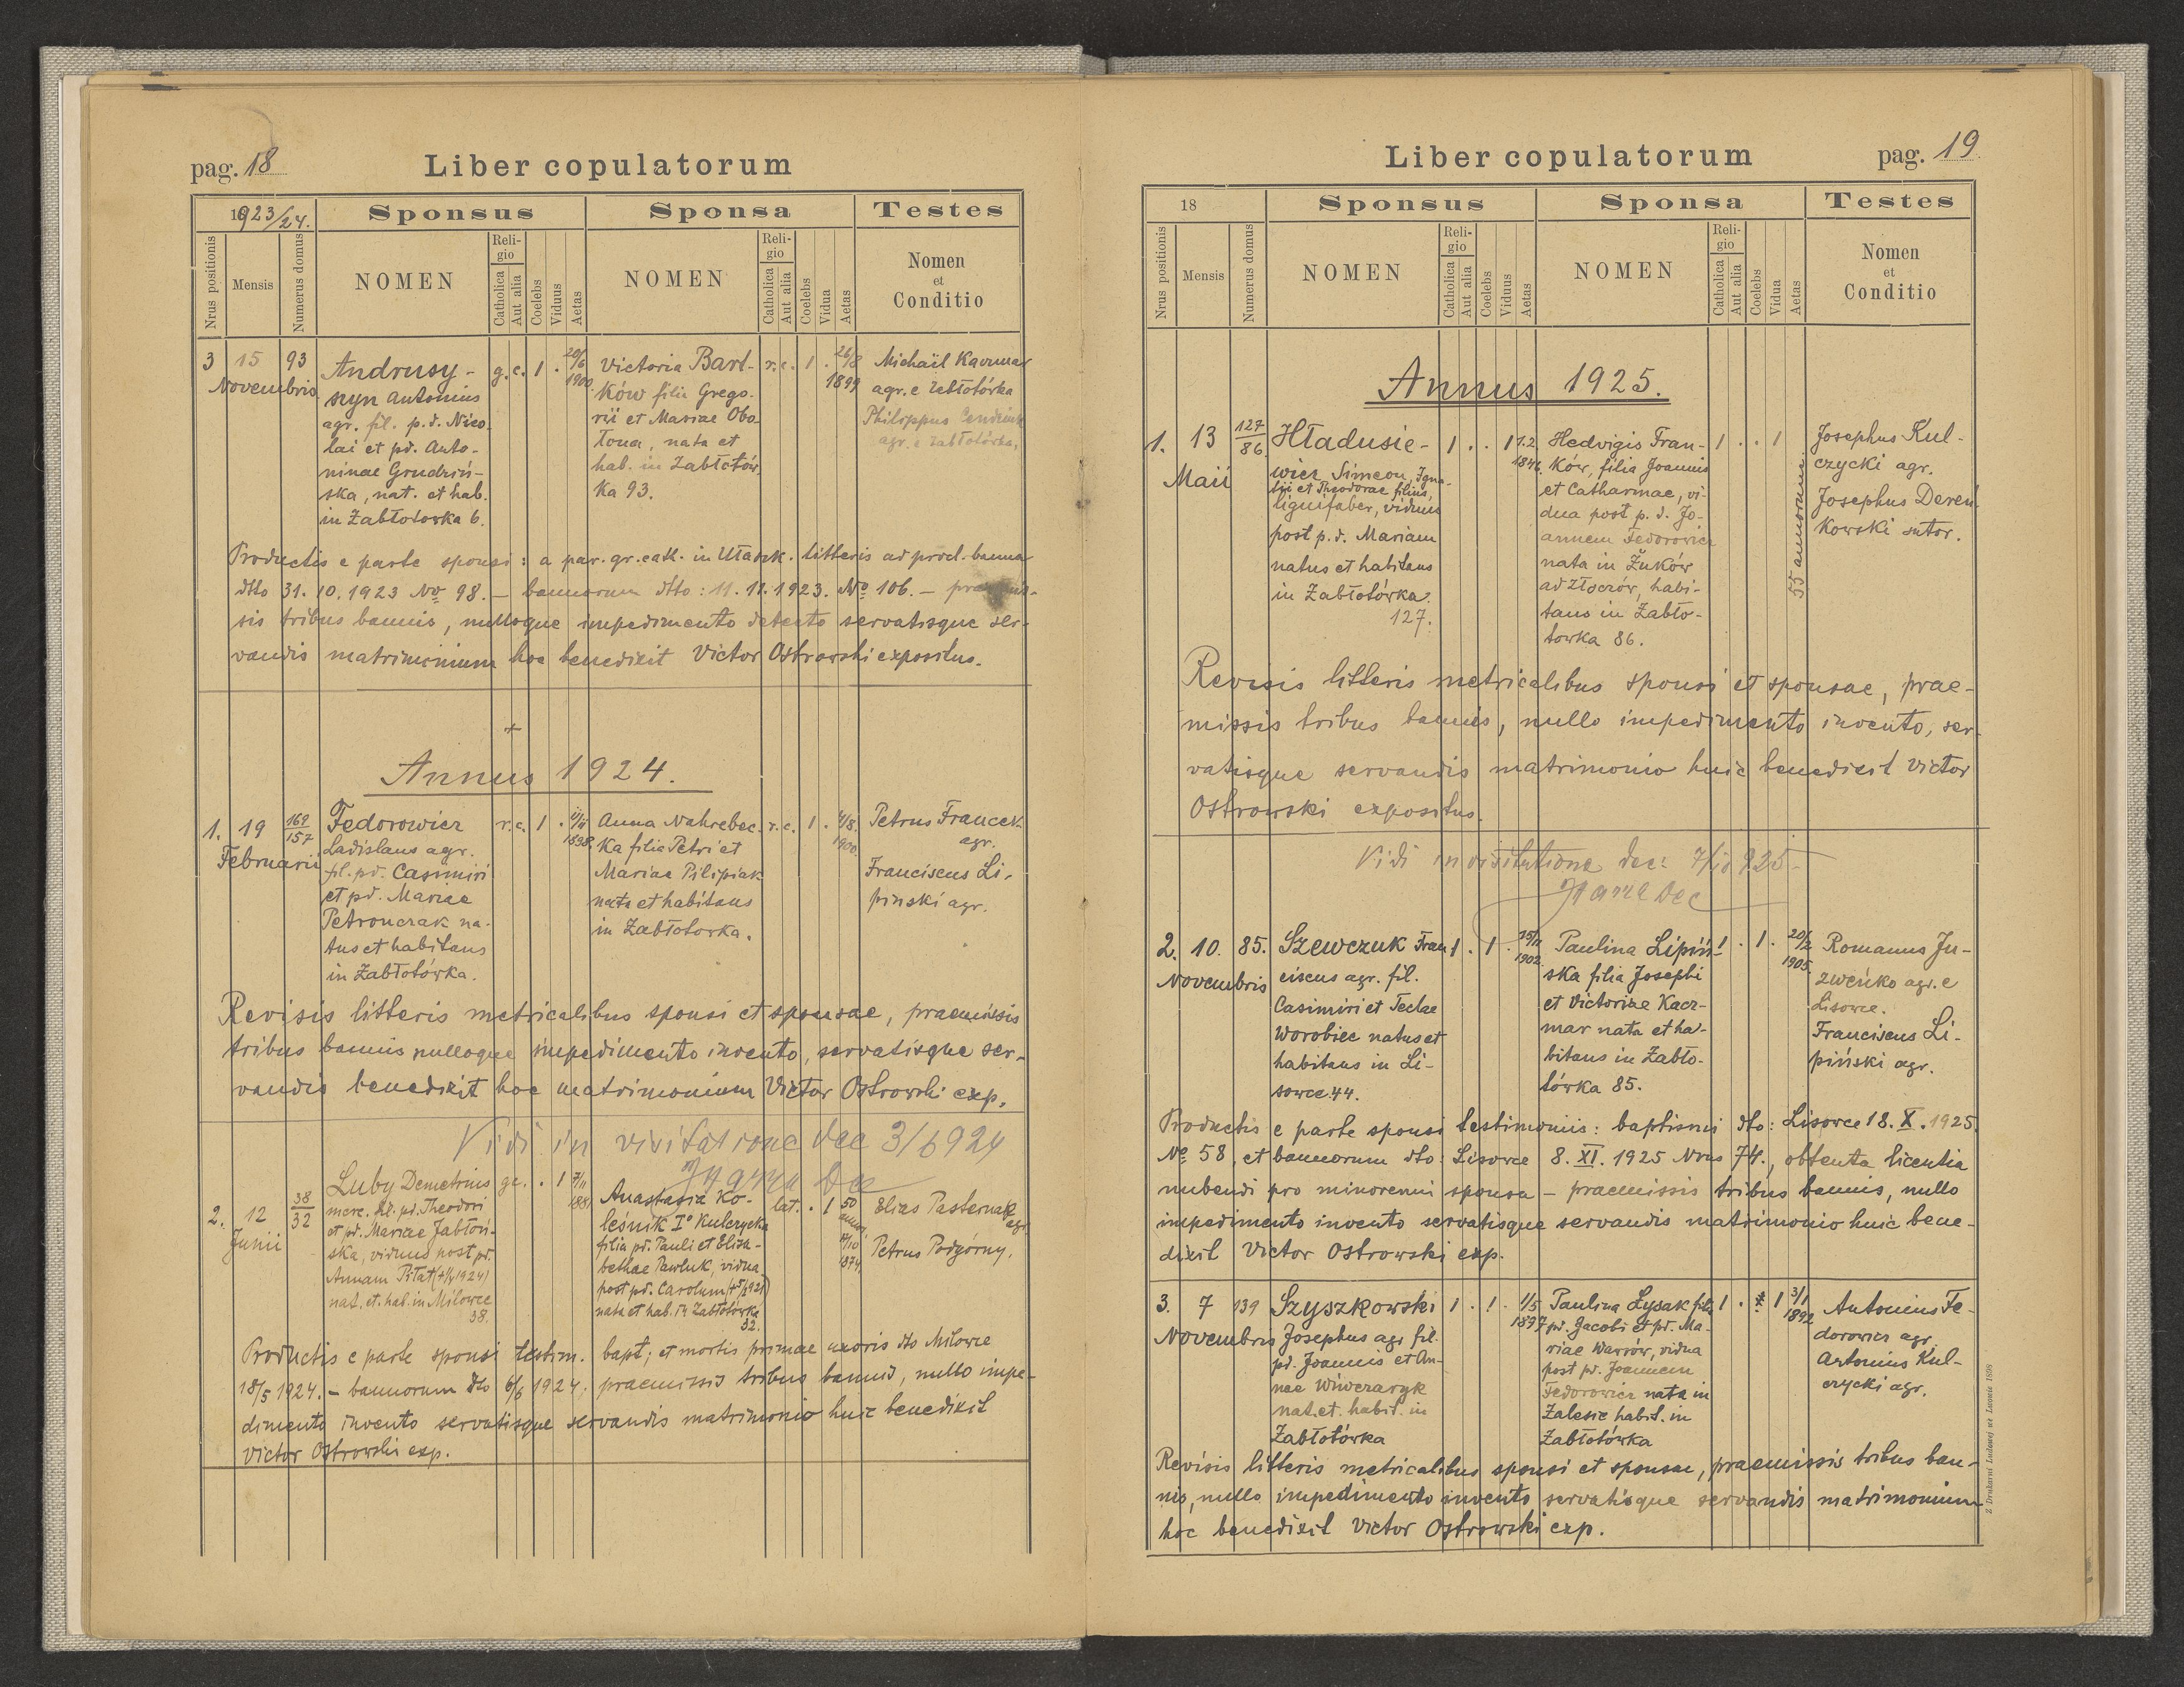 pag. 18
Liber copulatorum
1923/24.
Sponsus
Sponsa
Testes
Nrus positionis
Mensis
Numerus domus
NOMEN
Religio
Catholica
Aut alia
Coelebs
Viduus
Aetas
NOMEN
Religio
Catholica
Aut alia
Coelebs
Vidua
Aetas
Nomen
et
Conditio
3 15 93
Novembris
Andrusy-
szyn Antonius
agr. fil. p.d. Nico-
lai et pd. Anto-
ninae Grudziń-
ska, nat. et hab.
in Zabłotowka 6.
g. c. 1 . 20/6
1900.
Victoria Bart-
ków filia Grego-
rii et Mariae Obo-
łona, nata et
hab. in Zabłotów
ka 93.
r. c. 1 . 26/8
1899
Michaël Kaczmar
agr. e Zabłotówka
Philippus
agr. e Zabłotówka,
Productis e parte sponsi : a par. gr. cath. in Ułaszk. litteris ad procl. banna
dtto 31. 10. 1923 No 98. — bannorum dtto : 11. 11. 1923. No 106. — praemis-
sis tribus bannis, nulloque impedimento detecto servatisque ser-
vandis matrimonium hoc benedixit Victor Ostrowski expositus.
+
Annus 1924.
1. 19 169/157
Februarii
Fedorowicz
Ladislaus agr.
fil. pd. Casimiri
et pd. Mariae
Petronczak na-
tus et habitans
in Zabłotówka.
r. c. 1 .
1898.
Anna Nahrebec-
ka filia Petri et
Mariae Pilipiak
nata et habitans
in Zabłotowka.
r. c. 1 . 4/8.
1900.
Petrus Francek
agr.
Franciscus Li-
pinski agr.
Revisis litteris metricalibus sponsi et sponsae, praemissis
tribus bannis nulloque impedimento invento, servatisque ser-
vandis benedixit hoc matrimonium Victor Ostrowski exp.
Vidi in visitatione dec 3/6 924
2. 12 38/32
Junii
Luby Demetrius
merc. fil. pd. Theodori
et pd. Mariae Jabłoń-
ska, viduus post pd.
Annam Piłat
nat. et. hab. in Milowce
38.
gc. . 1 7/11
1881
Anastasia Ko-
leśnik Io Kulczycka
filia pd. Pauli et Elisa-
bethae Pawluk, vidua
post pd. Carolum
nata et hab. in Zabłotówka
32.
lat. . 1 50
annor.
1874
Elias Pasternak
agr.
Petrus Podgórny.
Productis e parte sponsi testim. bapt; et mortis primae uxoris dto Milowce
18/5 1924. — bannorum dto 6/6 1924; praemissis tribus bannis, nullo impe-
dimento invento servatisque servandis matrimonio huic benedixit
Victor Ostrowski exp.
Liber copulatorum
pag. 19
18
Sponsus
Sponsa
Testes
Nrus positionis
Mensis
Numerus domus
NOMEN
Religio
Catholica
Aut alia
Coelebs
Viduus
Aetas
NOMEN
Religio
Catholica
Aut alia
Coelebs
Vidua
Aetas
Nomen
et
Conditio
Annus 1925.
1. 13 127/86
Maii
Hładusie-
wicz Simeon, Igna-
tii et Theodorae filius,
lignifaber, viduus
post p. d. Mariam
natus et habitans
in Zabłotówka
127.
1 . . 1
Hedvigis Fran-
ków, filia Joannis
et Catharinae, vi-
dua post p. d. Jo-
annem Fedorowicz
nata in Żuków
ad Złoczów, habi-
tans in Zabło-
towka 86.
1 . . 1
55 annorum
Josephus Kul-
czycki agr.
Josephus Dereń-
kowski sutor.
Revisis litteris metricalibus sponsi et sponsae, prae-
missis tribus bannis, nullo impedimento invento, ser-
vatisque servandis matrimonio huic benedixit Victor
Ostrowski expositus.
Vidi in visitatione dec: 7/10 925
2. 10. 85.
Novembris
Szewczuk Fran
ciscus agr. fil.
Casimiri et Teclae
Worobiec natus et
habitans in Li-
sowce 44.
1 . 1 .
1902.
Paulina Lipiń-
ska filia Josephi
et Victoriae Kacz-
mar nata et ha-
bitans in Zabło-
tówka 85.
1 . 1 . 20/2
1905.
Romanus Ju-
zweńko agr. e
Lisowce.
Franciscus Li-
piński agr.
Productis e parte sponsi testimoniis : baptismi dto : Lisowce 18. X. 1925.
No 58, et bannorum dto: Lisowce 8. XI. 1925 Nrus 74., obtenta licentia
nubendi pro minorenni sponsa — praemissis tribus bannis, nullo
impedimento invento servatisque servandis matrimonio huic bene-
dixit Victor Ostrowski exp.
3. 7 139
Novembris
Szyszkowski
Josephus agr. fil.
pd. Joannis et An-
nae Wiwczaryk
nat. et. habit. in
Zabłotówka
1 . 1 . 1/5
1897
Paulina Łysak filia
pd. Jacobi et pd. Ma-
riae Warrów, vidua
post pd. Joannem
Fedorowicz nata in
Zalesie habit. in
Zabłotówka
1 . 1 3/1
1892
Antonius Fe-
dorowicz agr.
Antonius Kul-
czycki agr.
Revisis litteris metricalibus sponsi et sponsae, praemissis tribus ban-
nis, nullo impedimento invento servatisque servandis matrimonium
hoc benedixit Victor Ostrowski exp.
Z Drukarni Ludowej we Lwowie 1898